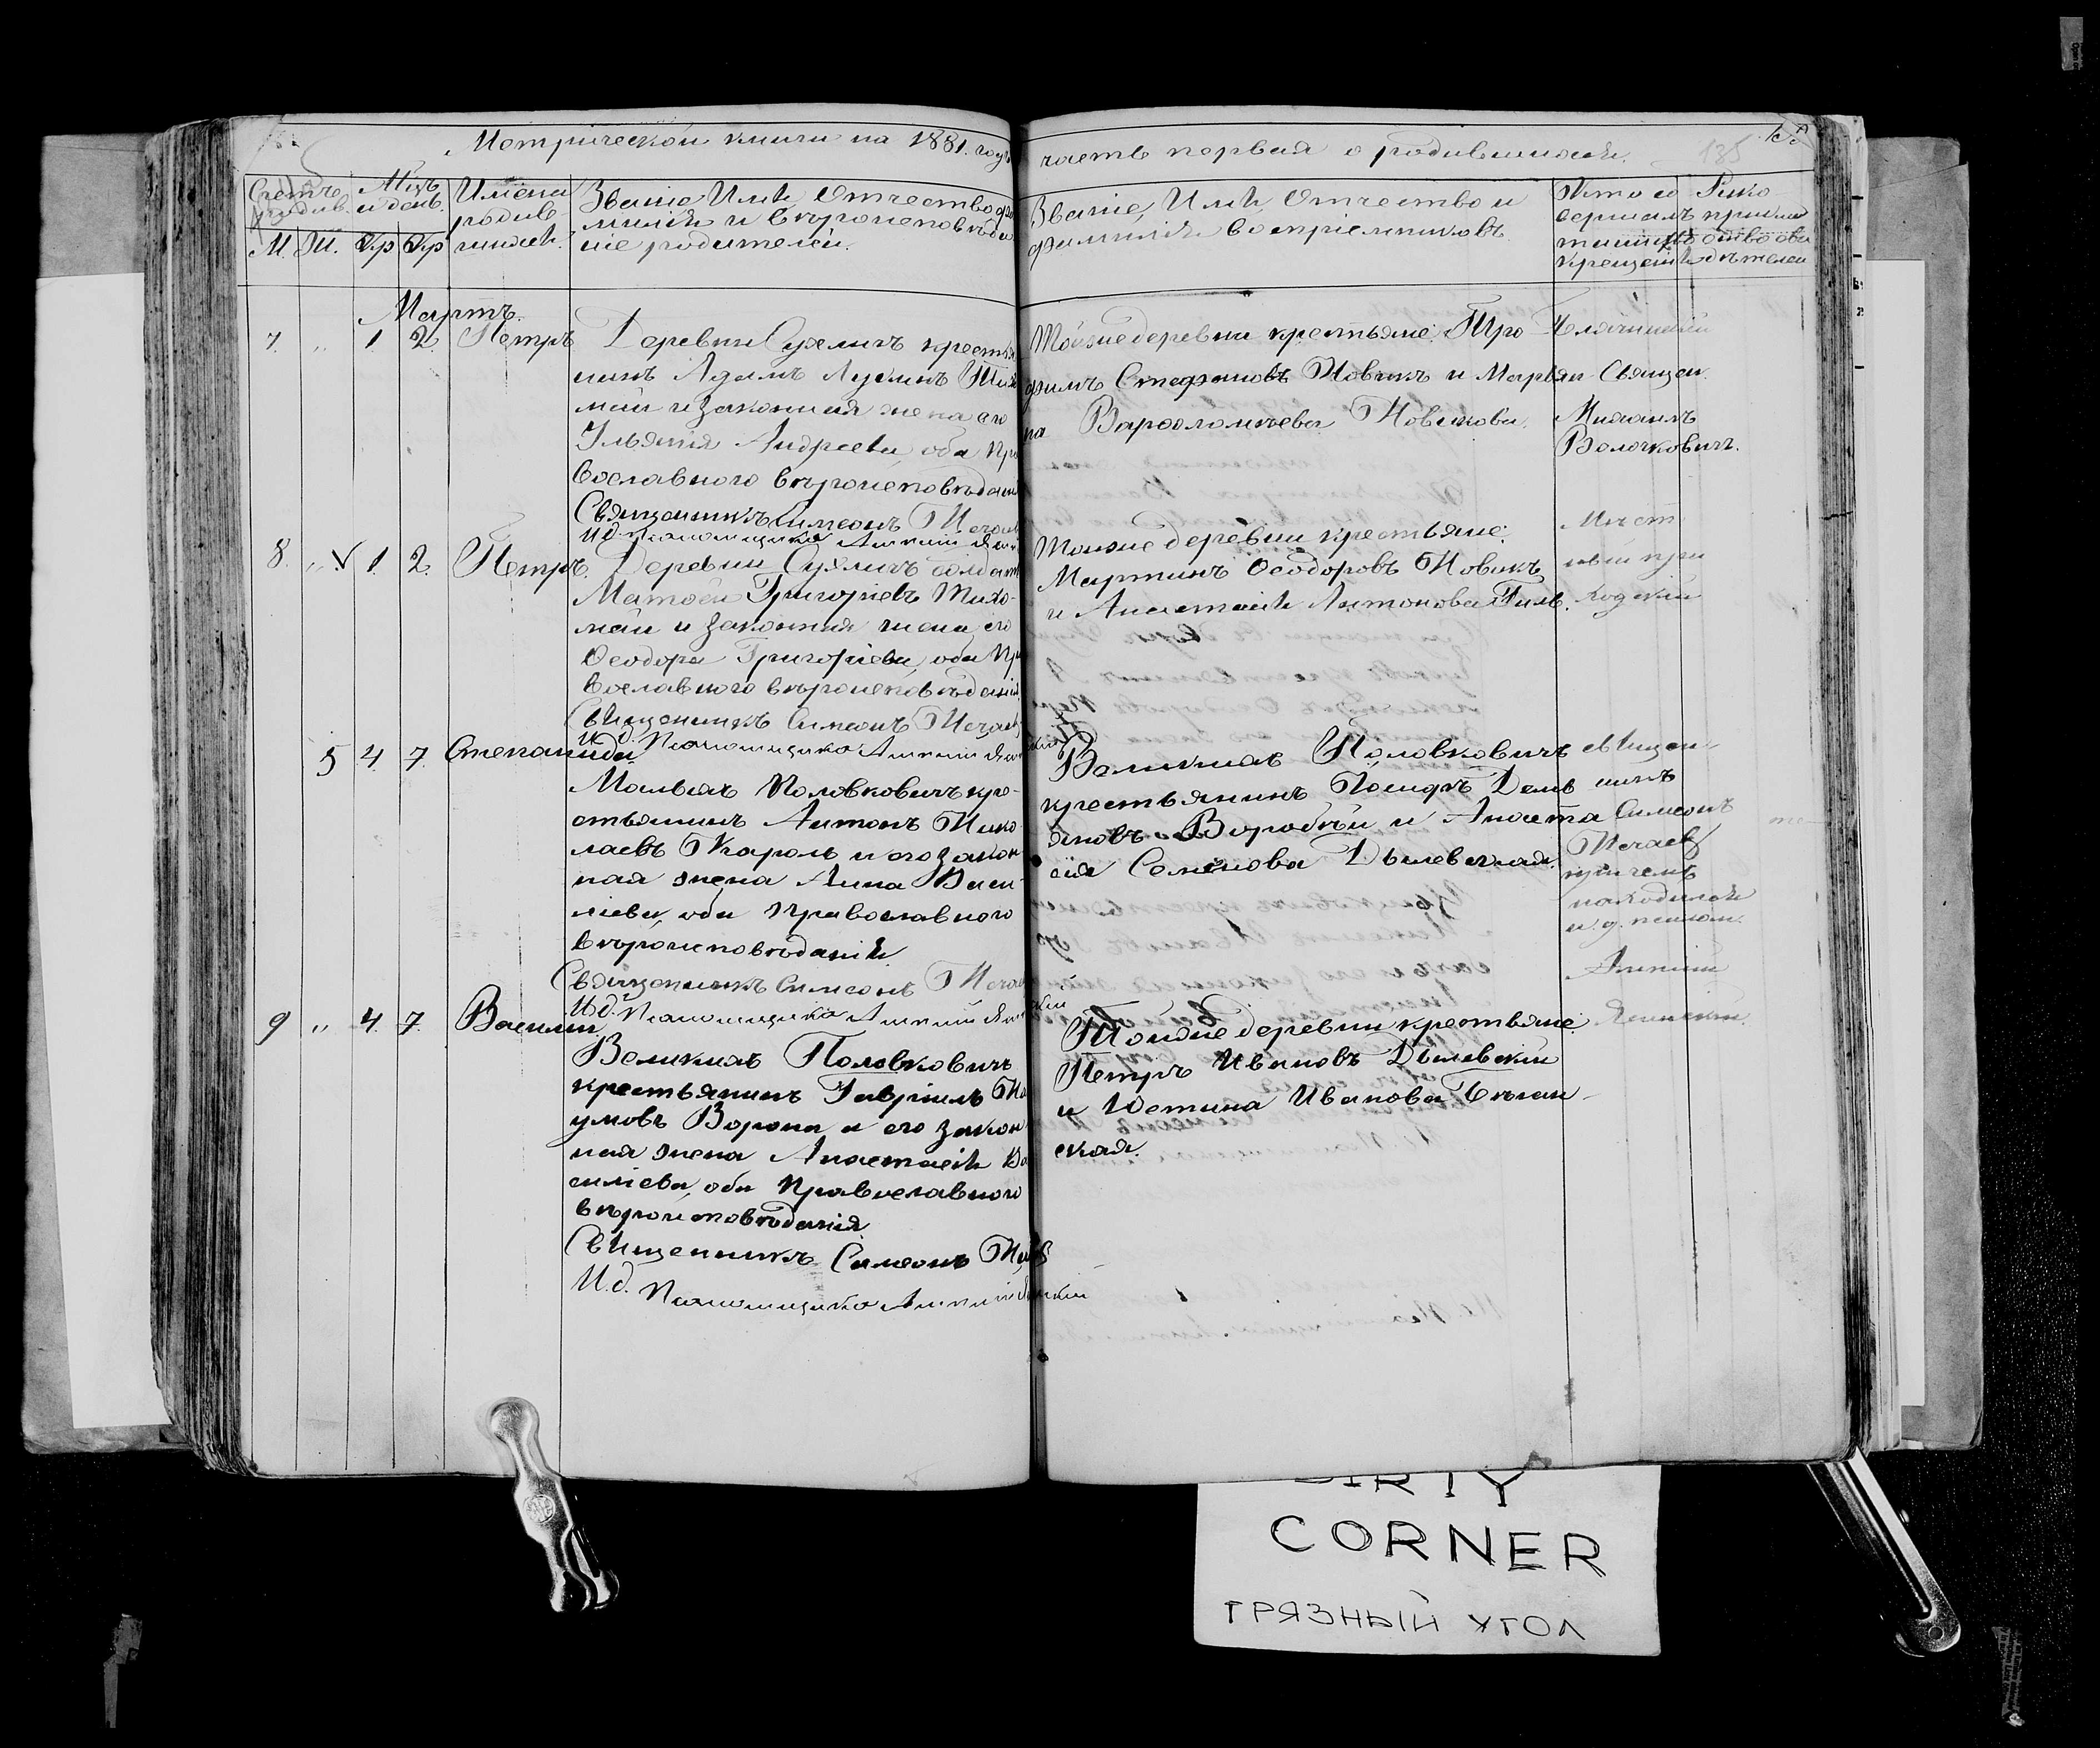 Метрической книги на 1881 годъ
часть первая о родившихся.
135
Счетъ родив.
М. Ж.
Мцъ и день.
Имена родив-
шихся.
Званіе, Имя, Отчество, фа-
милія и вѣроисповѣда-
ніе родителей.
Званіе, Имя, Отчество и
фамилія воспріемниковъ.
Кто со
вершалъ
таинство
крещенія
Руко
прикладство сви
дѣтелей
Мартъ.
7. " 1. 2. Петръ
Деревни Сухличъ крестья
нинъ Адамъ Лукинъ Тихо
май и законная жена его
Ульянія Андреева, оба пра
вославного вѣроисповѣданія
Священникъ Симеонъ Нечаевъ
И.д. Псаломщика
Тойже деревни крестьяне: Тро
фимъ Стефановъ Новикъ и Марья
на Варфоломѣева Новикова.
Священ.
Михаилъ
Волочковичъ.
8. " V 1. 2. Петръ.
Деревни Сухличъ солдатъ
Матфей Григорьевъ Тихо-
май и законная жена его
Феодора Григорьева, оба пра
вославного вѣроисповѣданія
Священникъ Симеонъ Нечаевъ
И.д. Псаломщика
Тойже деревни крестьяне:
Мартинъ Феодоровъ Новикъ
и Анастасія Антонова Гиль.
Мѣст
ный при
ходскій
5 4. 7. Степанида
Малыхъ Половковичъ кре-
стьянинъ Антонъ Нико
лаевъ Король и его закон
ная жена Анна Васи-
ліева, оба православного
вѣроисповѣданія
Священникъ Симеонъ Нечаевъ
И.д. Псаломщика
Великихъ Половковичъ
крестьянинъ Демь
яновъ Воробѣй и Анаста
сія Семенова Дылевская
священ-
никъ
Симеонъ
Нечаевъ
при чемъ
находился
и.д. псалом.
9 " 4. 7. Василій
Великихъ Половковичъ
крестьянинъ Гавріилъ На
умовъ Ворона и его закон
ная жена Анастасія Ва
силіева, оба православного
вѣроисповѣданія
Священникъ Симеонъ
И.д. Псаломщика
Тойже деревни крестьяне
Петръ Ивановъ Дылевскій
и Юстина Иванова
ская.
DIRTY
CORNER
ГРЯЗНЫЙ УГОЛ